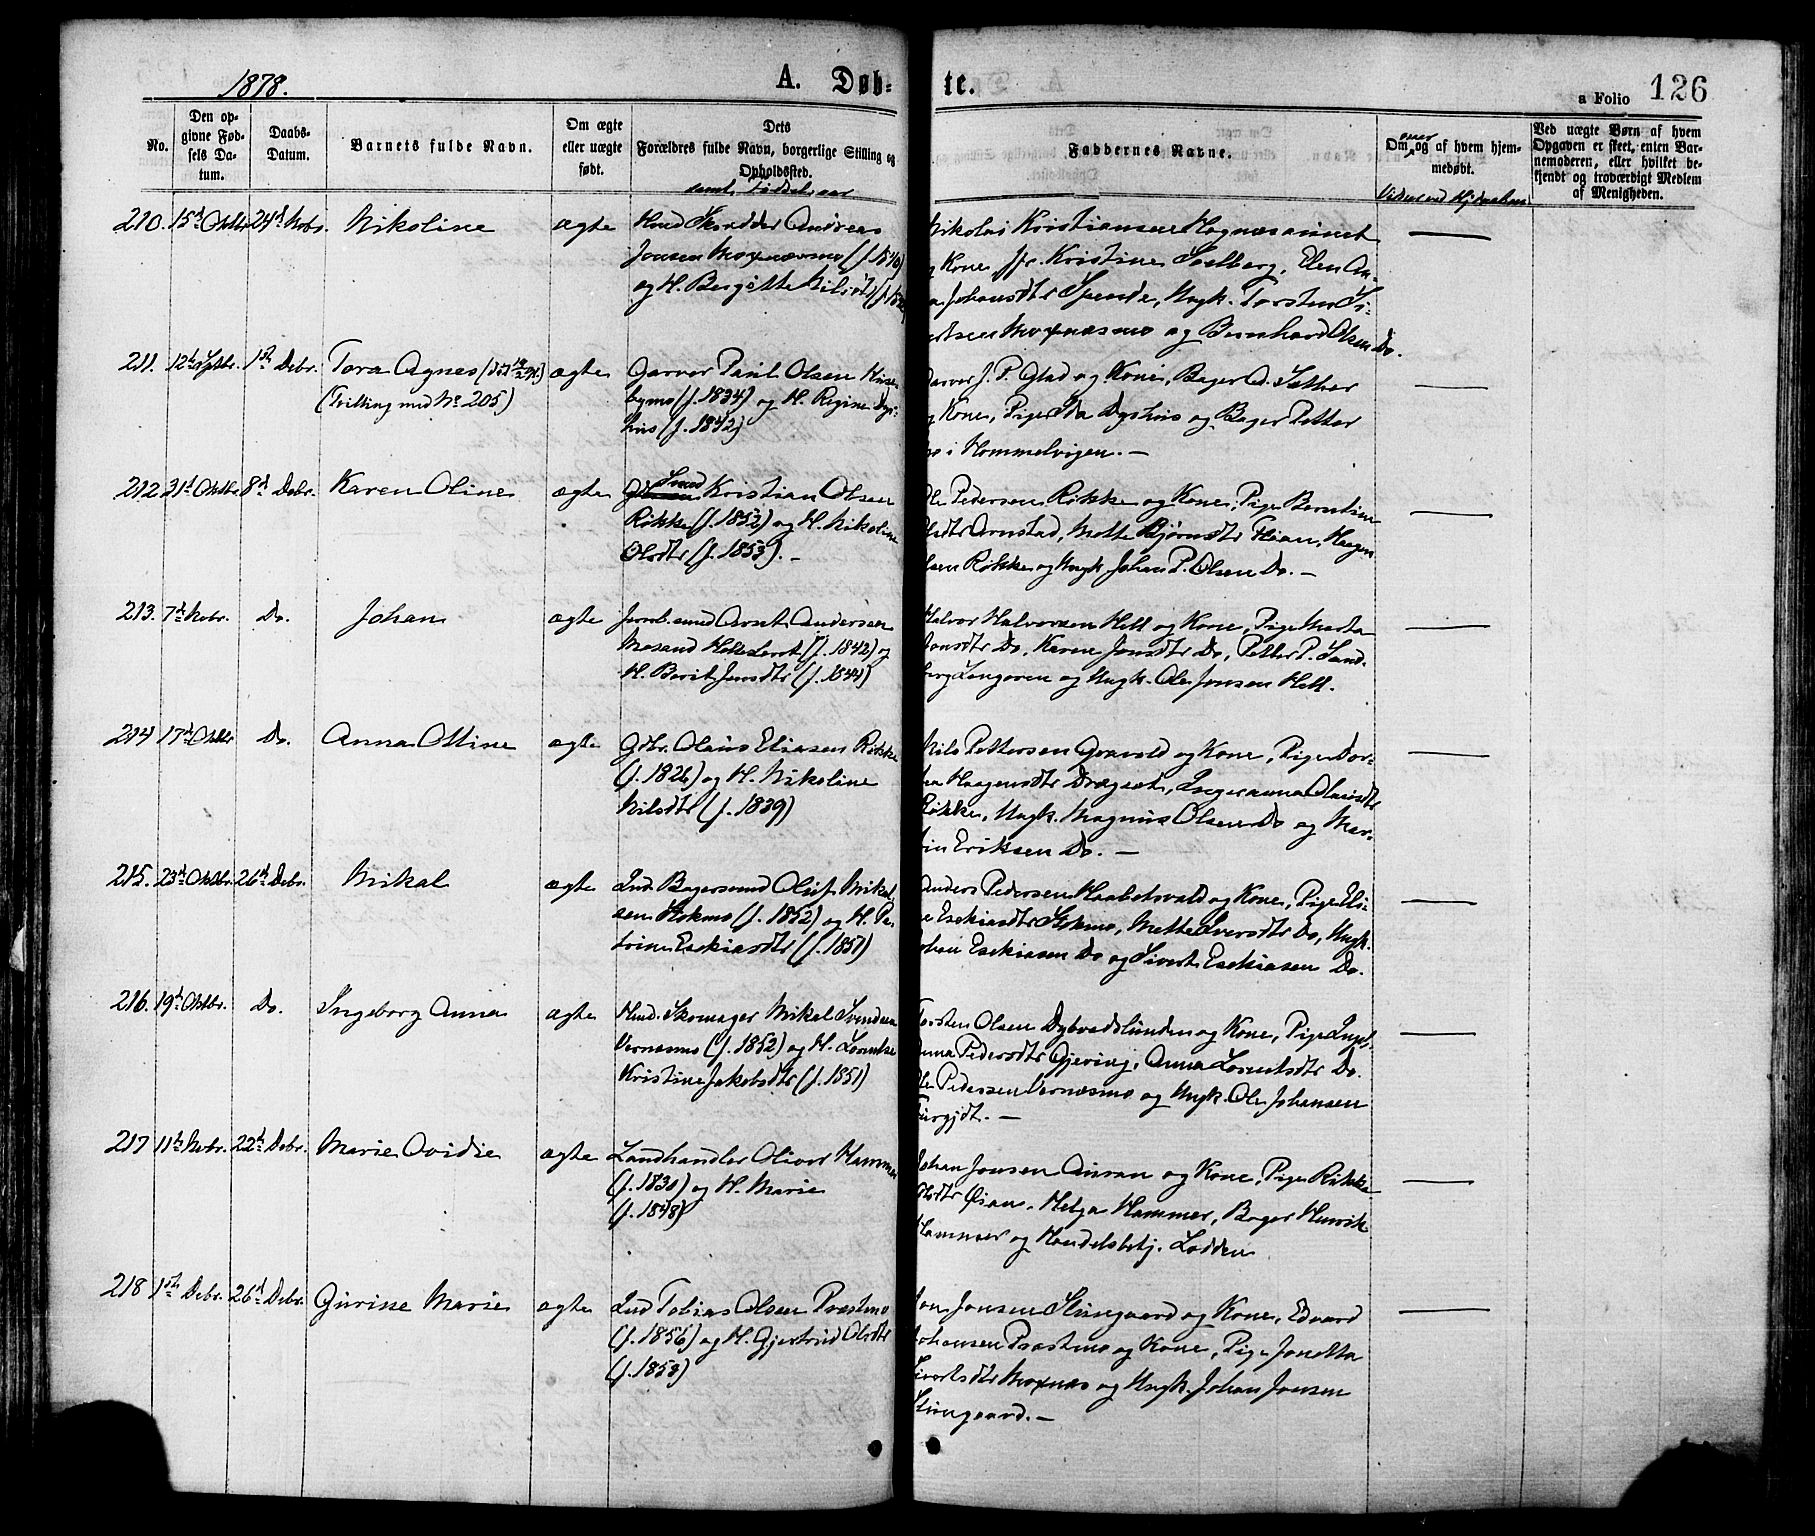 1878.
A. Døb-
te.
a Folio
126
No.
Den op-
givne Fød-
sels Da-
tum.
Daabs-
Datum.
Barnets fulde Navn.
Om ægte
eller uægte
født.
Dets
Forældres fulde Navn, borgerlige Stilling og
Opholdssted.
samt Fødselsaar
Faddernes Navne.
over
Om og af hvem hjem-
medøbt.
Ved uægte Børn af hvem
Opgaven er skeet, enten Bar-
nemoderen, eller hvilket be-
kjendt og troværdigt Medlem
af Menigheden.
210. 15d Oktbr 24d Novbr. Nikoline ægte Hmd Skrædder Andreas
Jonsen Moxnæsmo (f. 1840)
og H. Bergitte Nilsdtr
Nikolai Kristiansen Hognæsaunet
og Kone, Jfr. Kristine Salberg, Elen An-
na Johansdtr Spende, Ungk. Torsten Si-
vertsen Moxnæsmo og Bernhard Olsen Do.
211. 12te Septbr. 1ste Debr. Tora Agnes
(Tvilling med No 205) ægte
Garver Paul Olsen Huse-
bymo (f. 1834) og H. Regine Dys-
hvis (f. 1842)
Garver J. P. Glad og Kone, Bager A. Sæther
og Kone, Pige Ida Dyshvis og Bager Petter
i Hommelvigen. —
212. 31d Oktbr. 8d Debr. Karen Oline ægte
Smed Kristian Olsen
Røkke (f. 1852) og H. Nikoline
Olsdtr (f. 1853). —
Ole Pedersen Røkke og Kone, Pige Berntine
Olsdtr Arnstad, Mette Bjørnsdtr Flian, Haagen
Olsen Røkke og Ungk Johan P. Olsen Do. —
213. 7d Nobr. Do. Johan ægte
Jernb. smed Arnt Andersen
Mosand (f. 1842) og
H. Berit Jonsdtr (f. 1844)
Halvor Halvorsen Hell og Kone, Pige Marta
Jonsdtr Do, Karen Jonsdtr Do, Petter P. Sand-
berg Langøren og Ungk. Ole Jonsen Hell.
214 17d Oktbr Do. Anna Otline ægte
Gdbr. Olaus Eliasen Røkke
(f. 1826) og H. Nikoline
Nilsdtr (f. 1839)
Nils Pettersen Gravold og Kone, Pige Dor-
tea Haagensdtr Dragset, Ingeranna Olausdtr
Røkke, Ungk. Magnus Olsen Do og Mar-
tin Eriksen Do. —
215. 23d Oktbr. 26d Debr. Mikal ægte
Ind. Bagersvend Oluf Mikal-
sen Stokmo (f. 1852) og H. Pe-
trine Esekiasdtr (f. 1857)
Anders Pedersen Haabetsvald og Kone, Pige Eli-
ne Esekiasdtr Stokmo, Mette Iversdtr Do, Ungk.
Johan Esekiasen Do og Sivert Esekiasen Do.
216. 19d Oktbr. Do. Ingeborg Anna ægte
Hmd. Skomager Mikal Svendsen
Vernæsmo (f. 1852) og H. Lorentse
Kristine Jakobsdtr (f. 1851)
Torsten Olsen Dybvadslunden og Kone, Pige Ingb.
Anna Pedersdtr Gjering, Anna Lorentsdtr Do.
Ole Pedersen Vernæsmo og Ungk. Ole Johansen
217 11te Nobr. 22d Debr. Marie Ovidie ægte
Landhandler Oliver Hammer
(f. 1830) og H. Marie
(f. 1848)
Johan Jonsen Auran og Kone, Pige Rikke
Olsdtr Øian, Helga Hammer, Bager Henrik
Hammer og Handelsbetj. Lodden
218 1ste Debr. 26d Debr. Gurine Marie ægte
Ind Tobias Olsen Præstmo
(f. 1856) og H. Gjertrud Olsdtr
(f. 1853)
Jon Jonsen Stuegaard og Kone, Edvard
Johansen Præstmo og Kone, Pige Jonetta
Sivertsdtr Moxnæs og Ungk. Johan Jonsen
Stuegaard. —